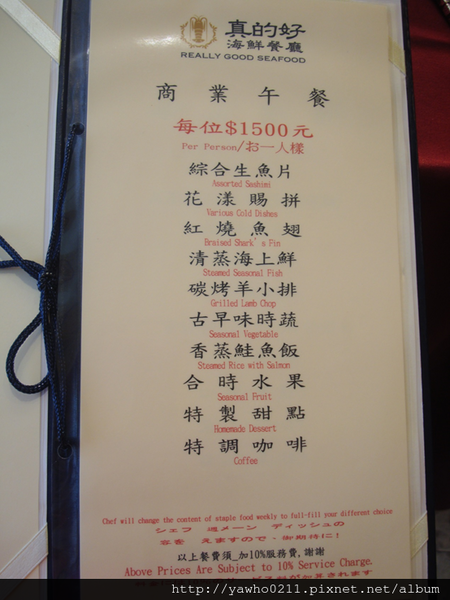 真的好
海鮮餐廳
REALLY GOOD SEAFOOD
商業午餐
每位$1500元
Per Person/お一人樣
綜合生魚片
Assorted Sashimi
花漾賜拼
Various Cold Dishes
紅燒魚翅
Braised Shark's Fin
清蒸海上鮮
Steamed Seasonal Fish
碳烤羊小排
Grilled Lamb Chop
古早味時蔬
Seasonal Vegetable
香蒸鮭魚飯
Steamed Rice with Salmon
合時水果
Seasonal Fruit
特製甜點
Homemade Dessert
特調咖啡
Coffee
Chef will change the content of staple food weekly to full-fill your different choice
シェフ 週メーン ディッシュの
容を えますので、御期待に!
以上餐費須_加10%服務費,謝謝
Above Prices Are Subject to 10% Service Charge.
http://yawho0211.pixnet.net/album